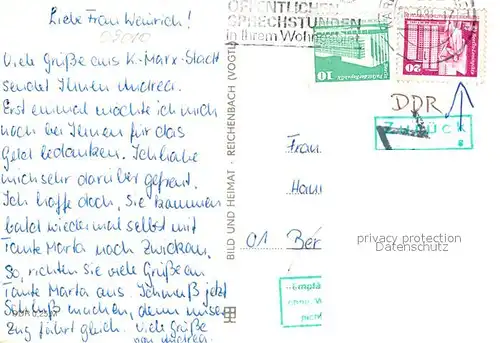 Liebe Frau Weinrich!
Viele grüße aus K.-Marx-Stadt
sendet Ihnen Andrea.
Erst einmal möchte ich mich
noch bei Ihnen für das
Geld bedanken. Ich habe
mich sehr darüber gefreut.
Ich hoffe doch, Sie kommen
bald wiedermal selbst mit
Tante Marta nach Zwickau.
So, richten sie viele Grüße an
Tante Marta aus. Ich muß jetzt
Schluß machen, denn unser
Zug fährt gleich. Viele grüße
von Andrea.
BILD UND HEIMAT · REICHENBACH (VOGTL)
ÖFFENTLICHEN
SPRECHSTUNDEN
in Ihrem Wohngebiet
10
20
DDR
ZURÜCK
Frau
01 Ber
privacy protection
Datenschutz